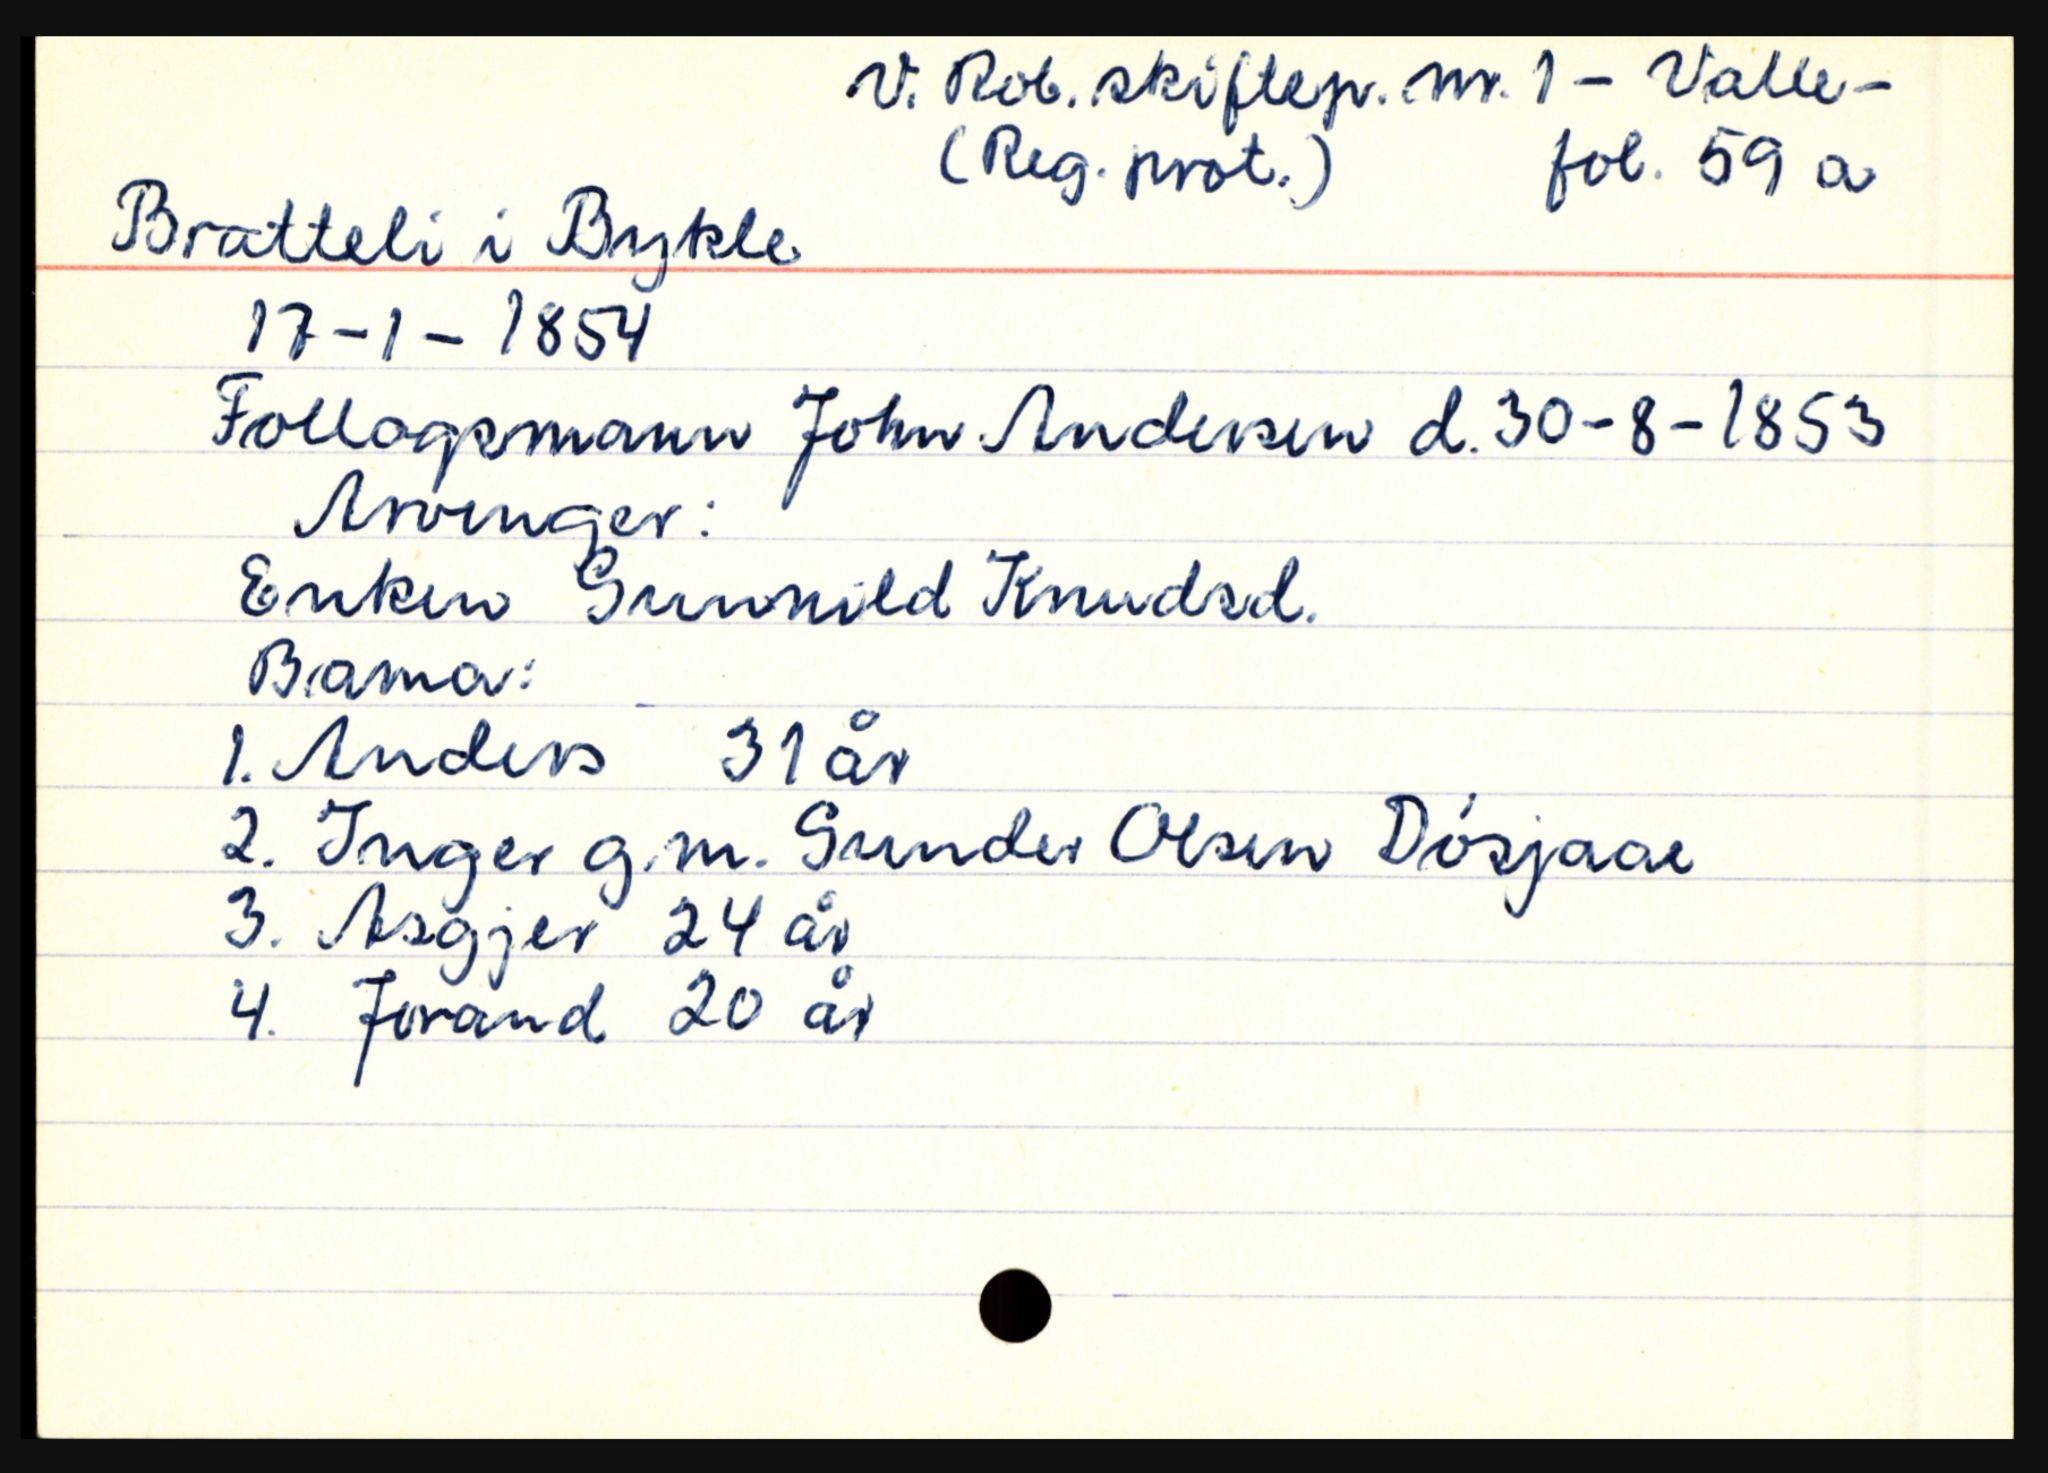 V. Rob. skiftep. nr. 1 - Valle -
(Reg. prot.) fol. 59 a
Bratteli i Bykle
17-1-1854
Follogsmann John Andersen d. 30-8-1853
Arvinger:
Enken Gunnild Knudsd.
Barna:
1. Anders 31 år
2. Inger g.m. Gunder Olsen Dósjaae
3. Asgjer 24 år
4. Jorand 20 år